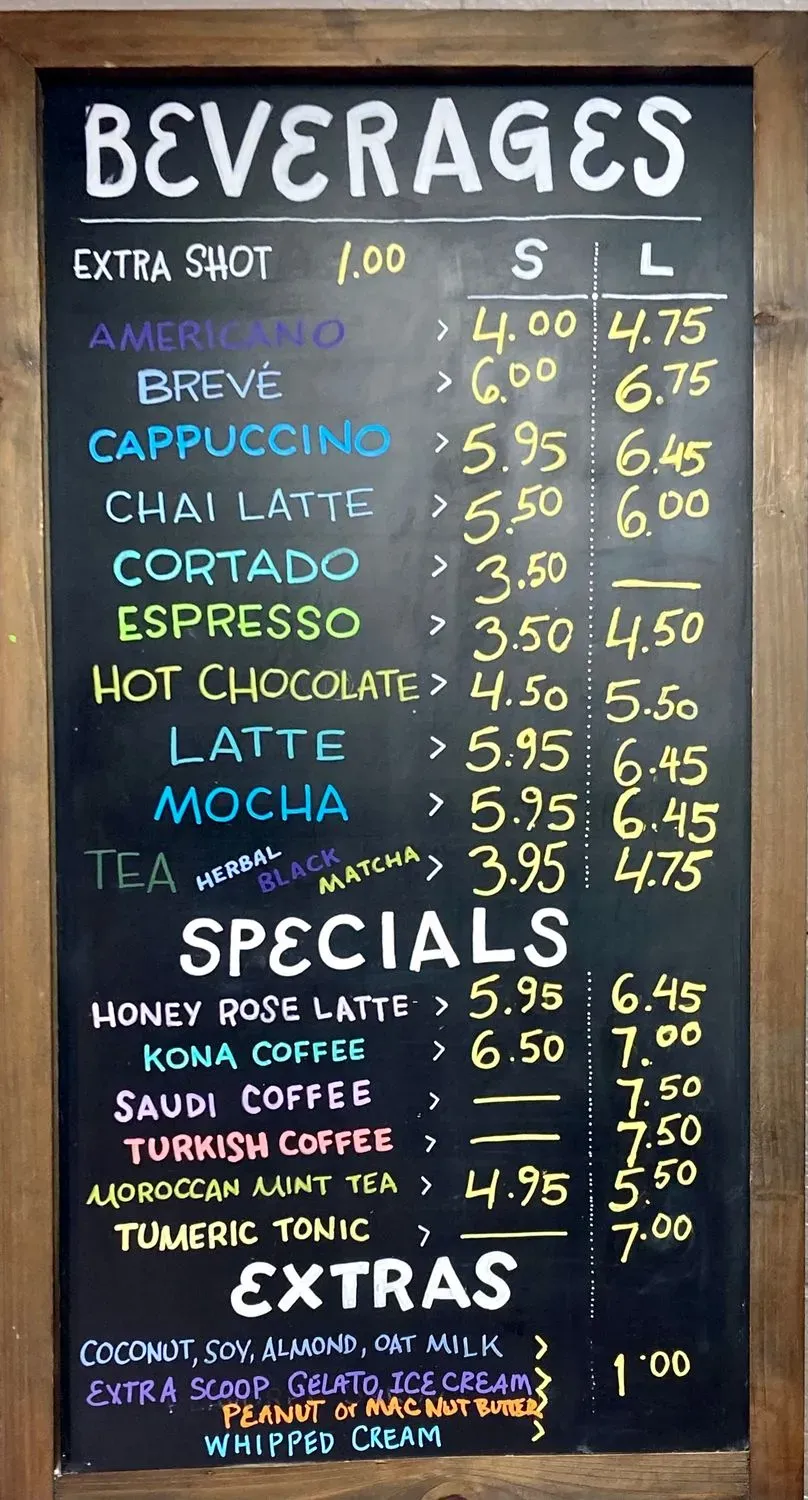 BEVERAGES
EXTRA SHOT 1.00 S L
AMERICANO > 4.00 4.75
BREVÉ > 6.00 6.75
CAPPUCCINO > 5.95 6.45
CHAI LATTE > 5.50 6.00
CORTADO > 3.50 —
ESPRESSO > 3.50 4.50
HOT CHOCOLATE > 4.50 5.50
LATTE > 5.95 6.45
MOCHA > 5.95 6.45
TEA HERBAL BLACK MATCHA > 3.95 4.75
SPECIALS
HONEY ROSE LATTE > 5.95 6.45
KONA COFFEE > 6.50 7.00
SAUDI COFFEE > — 7.50
TURKISH COFFEE > — 7.50
MOROCCAN MINT TEA > 4.95 5.50
TUMERIC TONIC > — 7.00
EXTRAS
COCONUT, SOY, ALMOND, OAT MILK >
EXTRA SCOOP GELATO, ICE CREAM > 1.00
PEANUT or MAC NUT BUTTER >
WHIPPED CREAM >